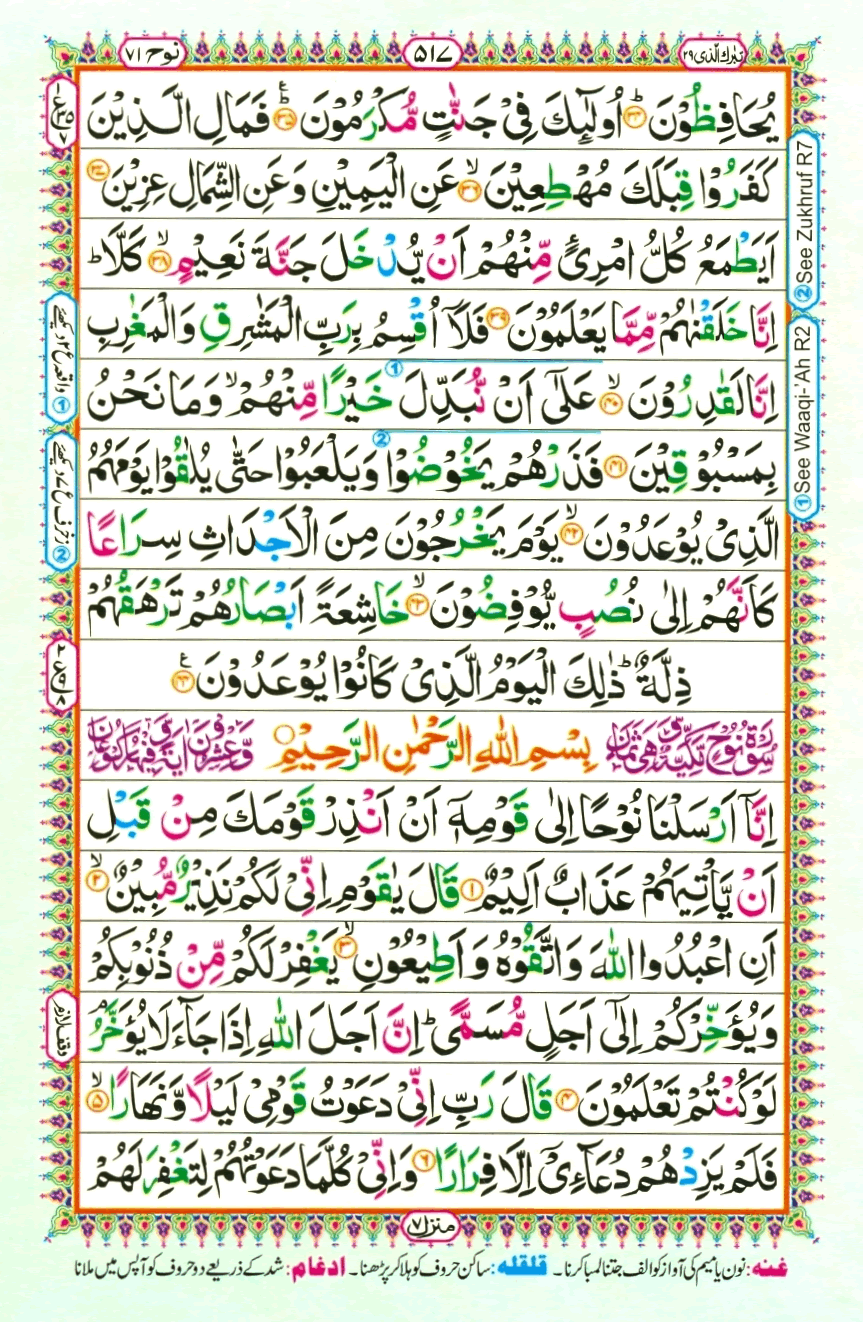 تبٰرك الّذى ٢٩
٥١٧
نوح ٧١
يُحَافِظُوْنَ ﴿٣٤﴾ؕ اُولٰٓئِكَ فِىْ جَنّٰتٍ مُّكْرَمُوْنَ ﴿٣٥﴾ؕ فَمَالِ الَّذِيْنَ
كَفَرُوْا قِبَلَكَ مُهْطِعِيْنَ ﴿٣٦﴾ۙ عَنِ الْيَمِيْنِ وَعَنِ الشِّمَالِ عِزِيْنَ ﴿٣٧﴾
اَيَطْمَعُ كُلُّ امْرِئٍ مِّنْهُمْ اَنْ يُّدْخَلَ جَنَّةَ نَعِيْمٍ ﴿٣٨﴾ۙ كَلَّا ؕ
اِنَّا خَلَقْنٰهُمْ مِّمَّا يَعْلَمُوْنَ ﴿٣٩﴾ فَلَاۤ اُقْسِمُ بِرَبِّ الْمَشٰرِقِ وَالْمَغٰرِبِ
اِنَّا لَقٰدِرُوْنَ ﴿٤٠﴾ۙ عَلٰٓى اَنْ نُّبَدِّلَ خَيْرًا مِّنْهُمْ ۙ وَمَا نَحْنُ
بِمَسْبُوْقِيْنَ ﴿٤١﴾ فَذَرْهُمْ يَخُوْضُوْا وَيَلْعَبُوْا حَتّٰى يُلٰقُوْا يَوْمَهُمُ
الَّذِىْ يُوْعَدُوْنَ ﴿٤٢﴾ۙ يَوْمَ يَخْرُجُوْنَ مِنَ الْاَجْدَاثِ سِرَاعًا
كَاَنَّهُمْ اِلٰى نُصُبٍ يُّوْفِضُوْنَ ﴿٤٣﴾ۙ خَاشِعَةً اَبْصَارُهُمْ تَرْهَقُهُمْ
ذِلَّةٌ ؕ ذٰلِكَ الْيَوْمُ الَّذِىْ كَانُوْا يُوْعَدُوْنَ ﴿٤٤﴾
سُوْرَةُ نُوْحٍ مَّكِّيَّةٌ وَّهِىَ ثَمَانٍ بِسْمِ اللّٰهِ الرَّحْمٰنِ الرَّحِيْمِ وَّعِشْرُوْنَ اٰيَةً وَّفِيْهَا رُكُوْعَانِ
اِنَّاۤ اَرْسَلْنَا نُوْحًا اِلٰى قَوْمِهٖۤ اَنْ اَنْذِرْ قَوْمَكَ مِنْ قَبْلِ
اَنْ يَّاْتِيَهُمْ عَذَابٌ اَلِيْمٌ ﴿١﴾ قَالَ يٰقَوْمِ اِنِّىْ لَكُمْ نَذِيْرٌ مُّبِيْنٌ ﴿٢﴾ۙ
اَنِ اعْبُدُوا اللّٰهَ وَاتَّقُوْهُ وَاَطِيْعُوْنِ ﴿٣﴾ۙ يَغْفِرْ لَكُمْ مِّنْ ذُنُوْبِكُمْ
وَيُؤَخِّرْكُمْ اِلٰٓى اَجَلٍ مُّسَمًّى ؕ اِنَّ اَجَلَ اللّٰهِ اِذَا جَآءَ لَا يُؤَخَّرُ ۘ
لَوْ كُنْتُمْ تَعْلَمُوْنَ ﴿٤﴾ قَالَ رَبِّ اِنِّىْ دَعَوْتُ قَوْمِىْ لَيْلًا وَّنَهَارًا ﴿٥﴾ۙ
فَلَمْ يَزِدْهُمْ دُعَآءِىْۤ اِلَّا فِرَارًا ﴿٦﴾ وَاِنِّىْ كُلَّمَا دَعَوْتُهُمْ لِتَغْفِرَ لَهُمْ
② See Zukhruf R7
① See Waaqi-'Ah R2
وقف لازم
منزل ٧
غنه: نون یا میم کی آواز کو الف جتنا لمبا کرنا ۔ قلقله: ساکن حروف کو ہلا کر پڑھنا ۔ ادغام: شد کے ذریعے دو حروف کو آپس میں ملانا